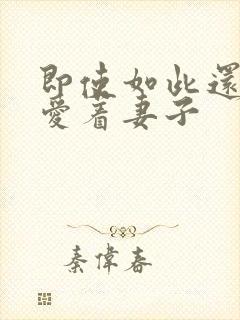 即使如此還
愛着妻子
秦偉春